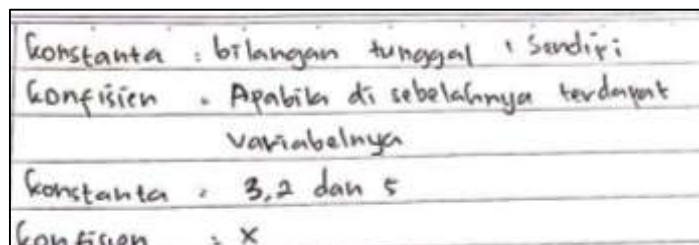 Konstanta : bilangan tunggal , sendiri
Konfisien : Apabila di sebelahnya terdapat
variabelnya
Konstanta : 3,2 dan 5
Konfisien : x